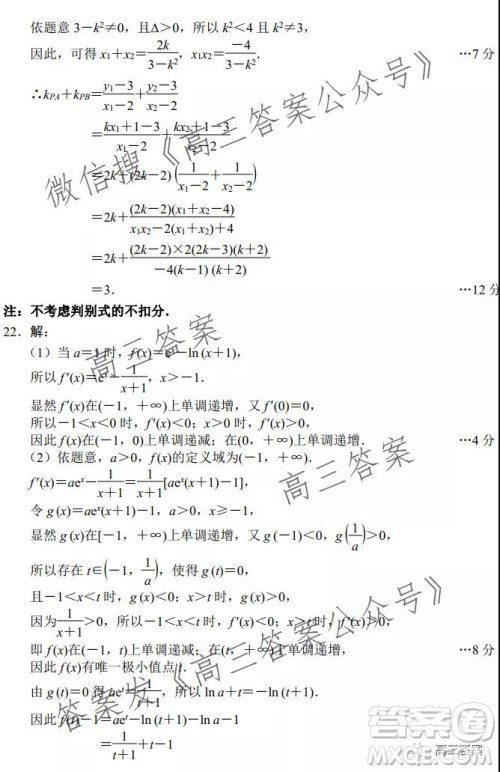 依题意 3－k²≠0，且Δ＞0，所以 k²＜4 且 k²≠3，
因此，可得 x₁＋x₂＝2k/(3－k²)，x₁x₂＝－4/(3－k²)． …7 分
∴kPA＋kPB＝(y₁－3)/(x₁－2)＋(y₂－3)/(x₂－2)
＝(kx₁＋1－3)/(x₁－2)＋(kx₂＋1－3)/(x₂－2)
＝2k＋(2k－2)(1/(x₁－2)＋1/(x₂－2))
＝2k＋(2k－2)(x₁＋x₂－4)/(x₁x₂－2(x₁＋x₂)＋4)
＝2k＋(2k－2)×2(2k－3)(k＋2)/(－4(k－1)(k＋2))
＝3． …12 分
注：不考虑判别式的不扣分．
22．解：
（1）当 a＝1 时，f(x)＝eˣ－ln(x＋1)，
所以 f′(x)＝eˣ－1/(x＋1)，x＞－1．
显然 f′(x)在(－1，＋∞)上单调递增，又 f′(0)＝0，
所以－1＜x＜0 时，f′(x)＜0；x＞0 时，f′(x)＞0，
因此 f(x)在(－1，0)上单调递减；在(0，＋∞)上单调递增． …4 分
（2）依题意，a＞0，f(x)的定义域为(－1，＋∞)．
f′(x)＝aeˣ－1/(x＋1)＝1/(x＋1)[aeˣ(x＋1)－1]，
令 g(x)＝aeˣ(x＋1)－1，a＞0，x≥－1，
显然 g(x)在[－1，＋∞)上单调递增，又 g(－1)＜0，g(1/a)＞0，
所以存在 t∈(－1，1/a)，使得 g(t)＝0，
且－1＜x＜t 时，g(x)＜0；x＞t 时，g(x)＞0，
因为1/(x＋1)＞0，所以－1＜x＜t 时，f′(x)＜0；x＞t 时，f′(x)＞0，
即 f(x)在(－1，t)上单调递减；在(t，＋∞)上单调递增， …8 分
因此 f(x)有唯一极小值点 t．
由 g(t)＝0 得 aeᵗ＝1/(t＋1)，所以 ln a＋t＝－ln(t＋1)，
因此 f(t)＝aeᵗ－ln(t＋1)－ln(t＋1)
＝1/(t＋1)＋t－1
微信搜《高三答案公众号》
高三答案
高三答案
答案发《高三答案公众号》
答案卷
高三答案